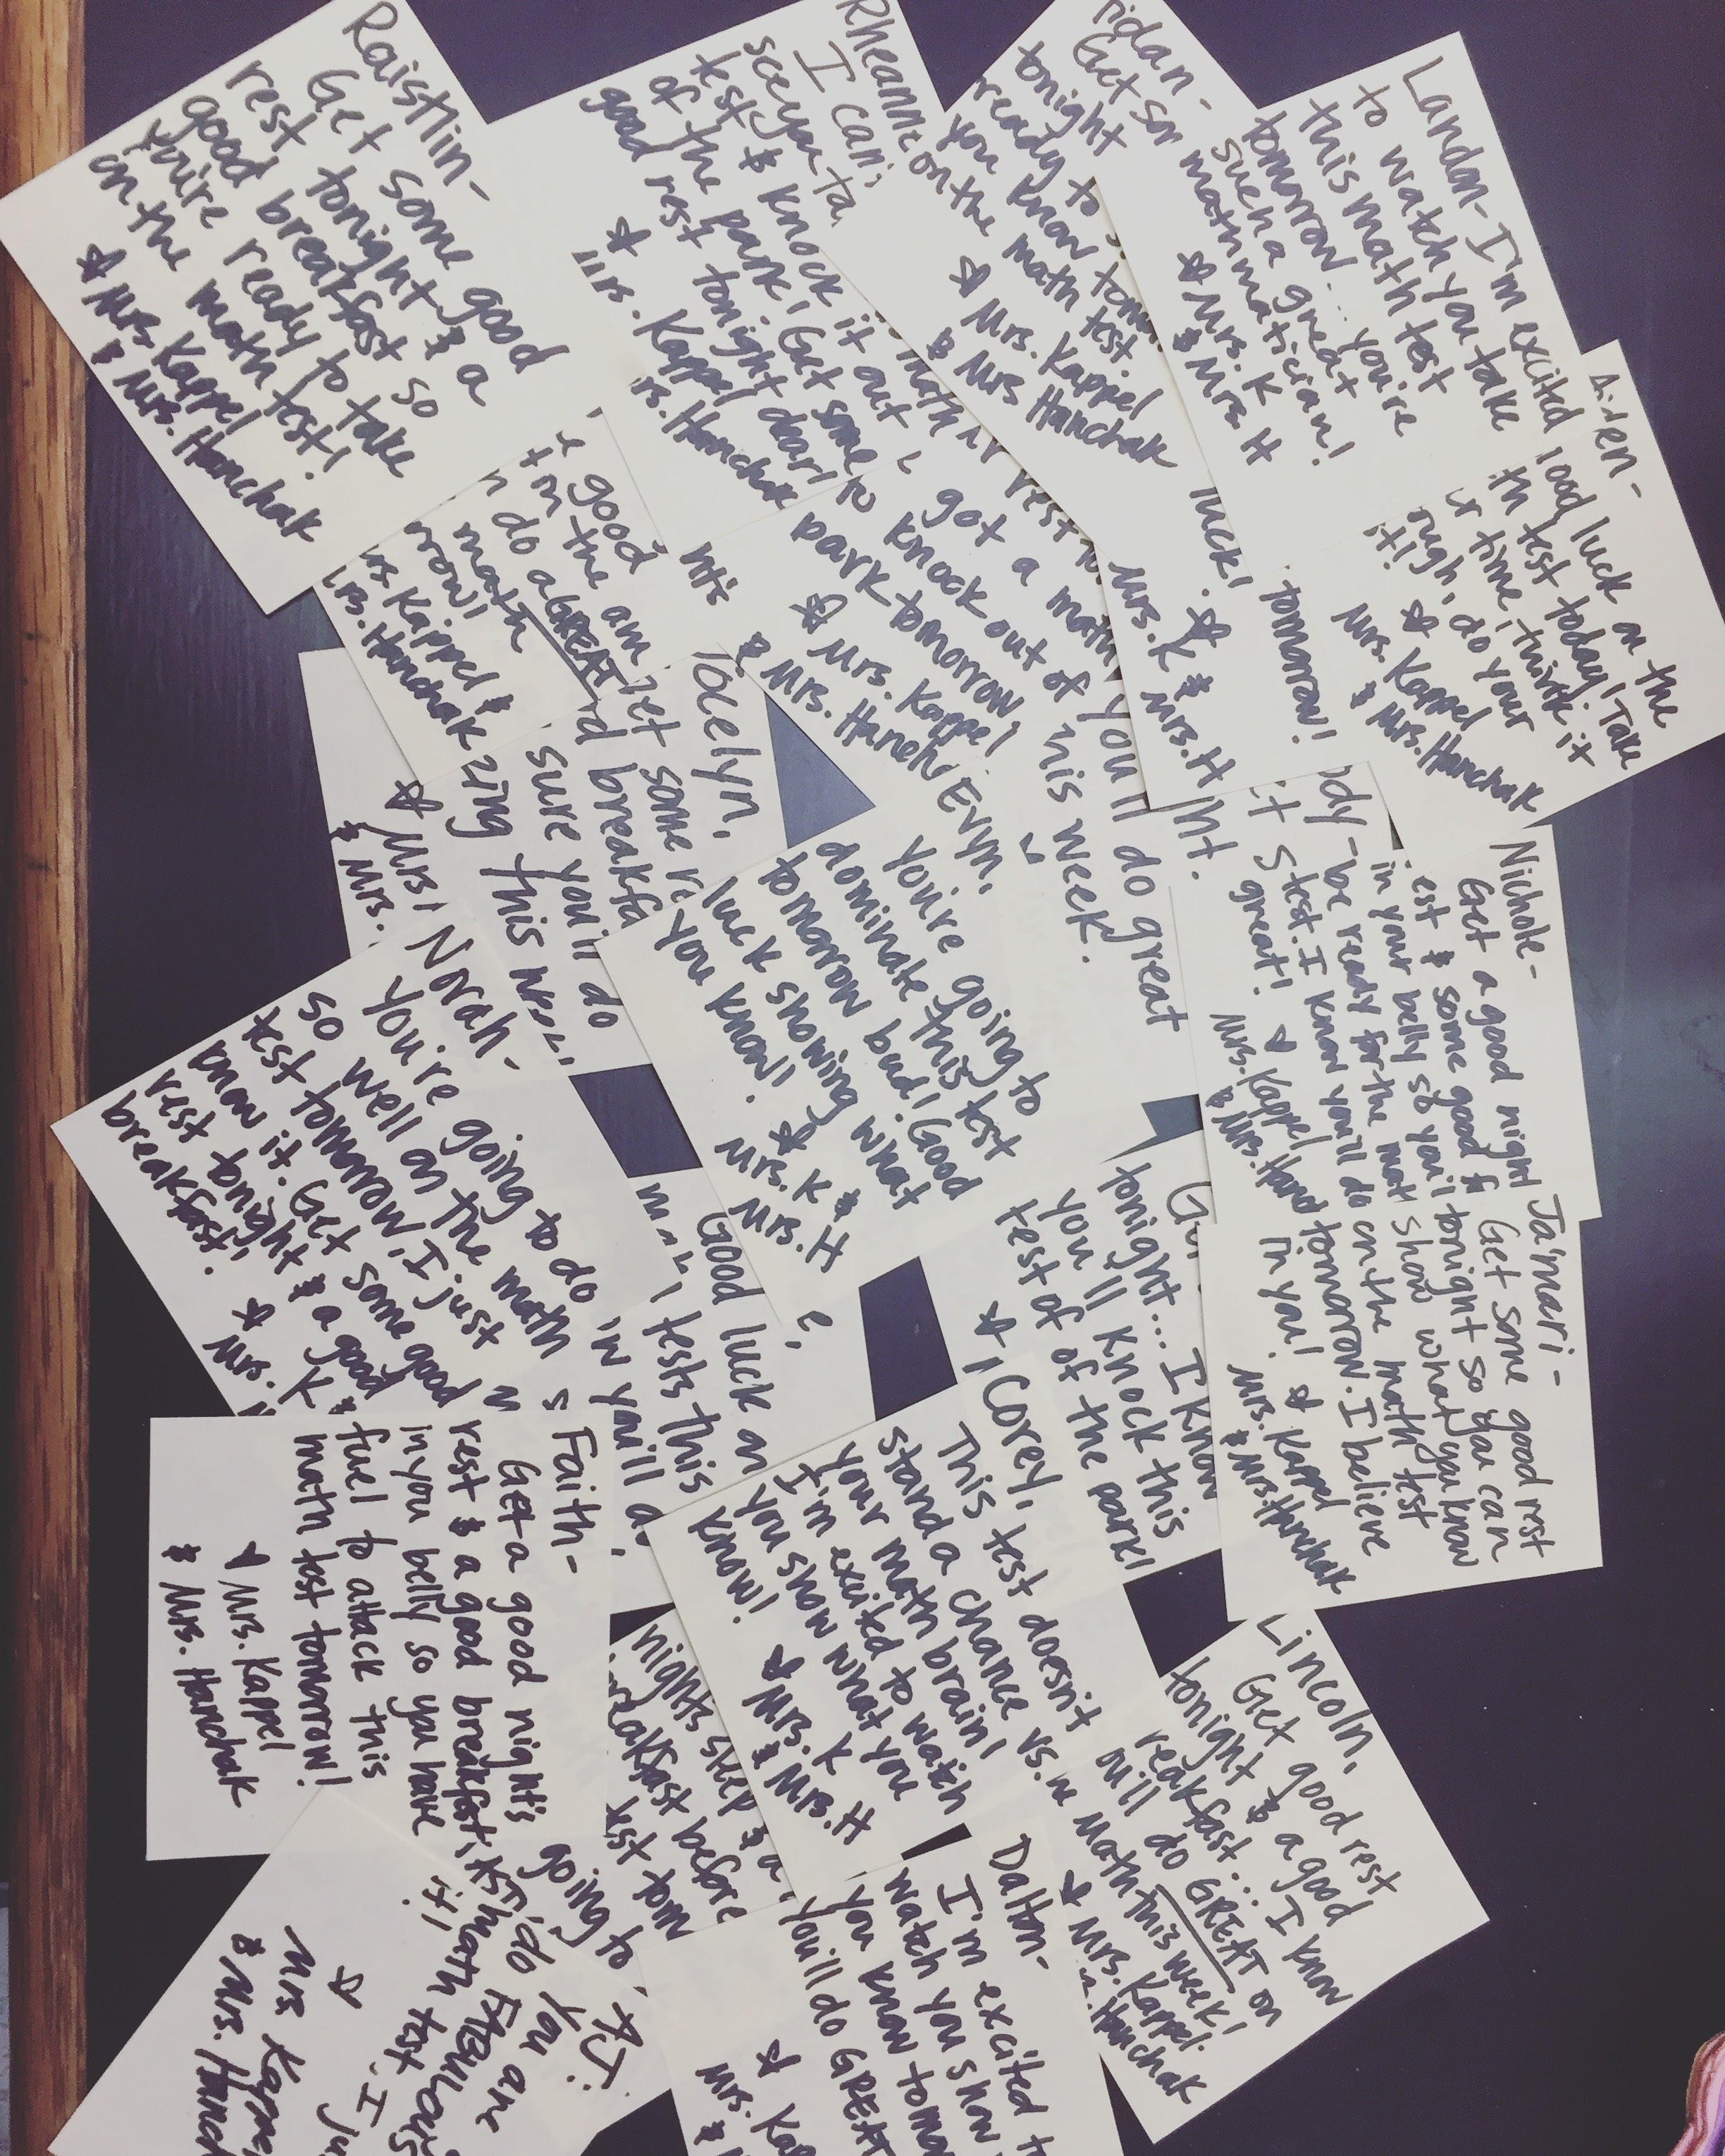 Raistlin-
Get some good
rest tonight & a
good breakfast so
you're ready to take
on the math test!
Mrs. Kappel
& Mrs. Hanchak
Rheann
I can
see you ta
test & knock it out
of the park! Get some
good rest tonight dear!
Mrs. Kappel
rs. Hanchak
idan-
Get som
tonight
ready to
you know tom
on the math test.
Mrs. Kappel
& Mrs Hanchak
Landon- I'm excited
to watch you take
this math test
tomorrow... you're
such a great
mathmatician!
Mrs. K
& Mrs. H
Aiden-
ood luck on the
th test today! Take
r time, think it
ough, do your
it!
Mrs. Kappel
& Mrs. Hanchak
good
I'm the
do a GREAT
math
rrow!
rs Kappel &
rs. Hanchak
got a
knock out of
park tomorrow!
Mrs. Kappel
& Mrs. Hanch
luck!
Mrs. K & Mrs. H
tomorrow!
you'll do great
this week.
Jocelyn,
et some re
d breakfa
sure you'll do
zing this
Mrs.
& Mrs.
Evyn,
You're going to
dominate this test
tomorrow bud! Good
luck showing what
you know!
Mrs. K &
Mrs. H
Nichole-
Get a good night
est & some good f
in your belly so you'll
be ready for the mat
test. I know you'll do
great!
Mrs. Kappel
& Mrs. Han
Ja'mari-
Get some good rest
tonight so you can
show what you know
on the math test
tomorrow. I believe
in you!
Mrs. Kappel
& Mrs. Hanchak
Norah-
You're going to do
so well on the math
test tomorrow, I just
know it. Get some good
rest tonight & a good
breakfast!
Mrs. K
Good luck on
tests this
you'll
tonight... I know
you'll knock this
test of of the park!
Corey,
This test doesn't
stand a chance vs.
your math brain!
I'm excited to watch
you show what you
know!
Mrs. K
& Mrs. H
Faith-
Get a good night's
rest & a good breakfast
in you belly so you have
fuel to attack this
math test tomorrow!
Mrs. Kappel
& Mrs. Hanchak
night's sleep & a
reakfast before
test tom
Lincoln,
Get good rest
tonight & a good
reakfast... I know
ou'll do GREAT on
Math this week!
Mrs. Kappel
Hanchak
Dalton-
I'm excited t
watch you show
you know tomo
You'll do GREAT
Mrs. Ka
AJ:
You are
going to do FABULOUS
math test. I ju
it!
Mrs Kappe
& Mrs. Hanch